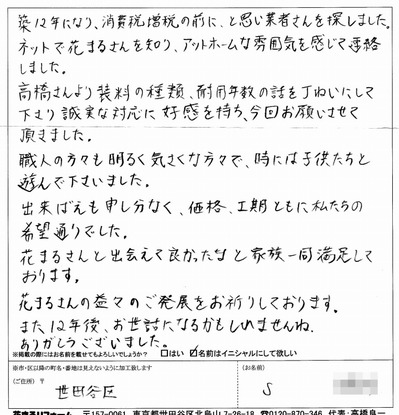 築12年になり、消費税増税の前に、と思い業者さんを探しました。
ネットで花まるさんを知り、アットホームな雰囲気を感じて連絡
しました。
高橋さんより塗料の種類、耐用年数の話を丁ねいにして
下さり誠実な対応に好感を持ち、今回お願いさせて
頂きました。
職人の方々も明るく気さくな方々で、時には子供たちと
遊んで下さいました。
出来ばえも申し分なく、価格、工期ともに私たちの
希望通りでした。
花まるさんと出会えて良かったなと家族一同満足して
おります。
花まるさんの益々のご発展をお祈りしております。
また12年後、お世話になるかもしれませんね。
ありがとうございました。
※掲載の際にはお名前を載せてもよろしいでしょうか？ □はい ☑名前はイニシャルにして欲しい
※市・区以降の町名・番地は見えないように加工致します
（ご住所）〒
世田谷区
（お名前）
S
花まるリフォーム 〒157-0061 東京都世田谷区北烏山7-26-18 ☎0120-870-346 代表：高橋良一